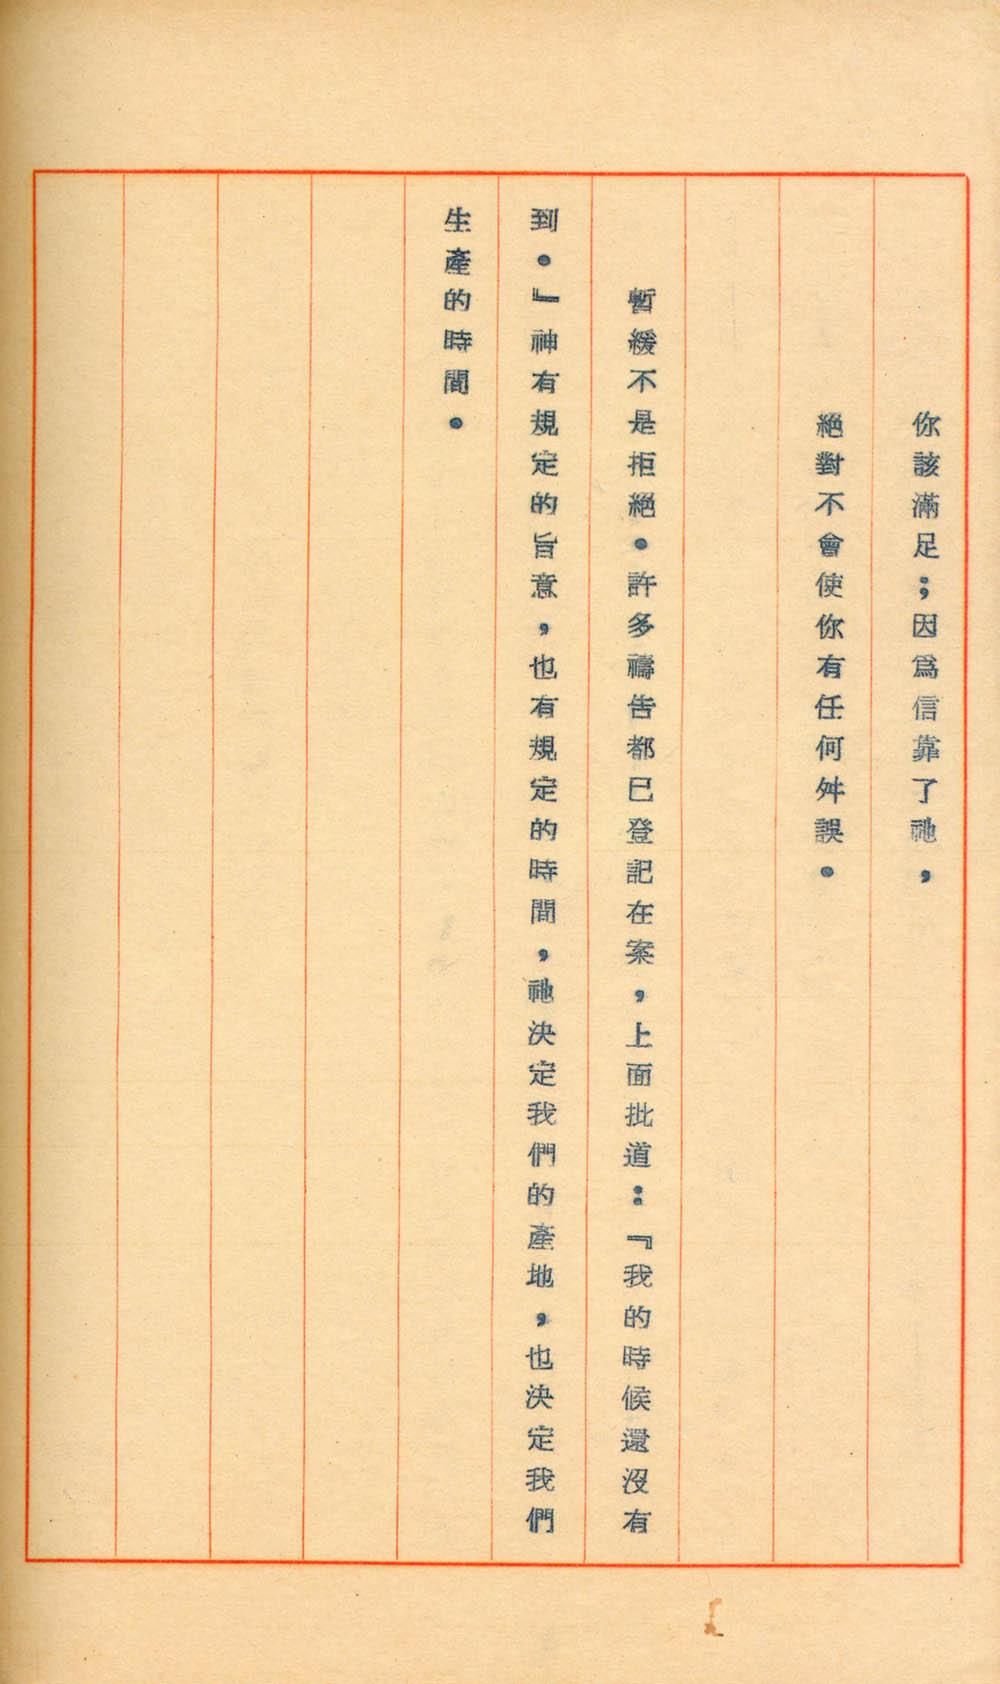 你該滿足；因爲信靠了祂，
絕對不會使你有任何舛誤。
暫緩不是拒絕。許多禱告都已登記在案，上面批道：『我的時候還沒有
到。』神有規定的旨意，也有規定的時間，祂決定我們的產地，也決定我們
生產的時間。